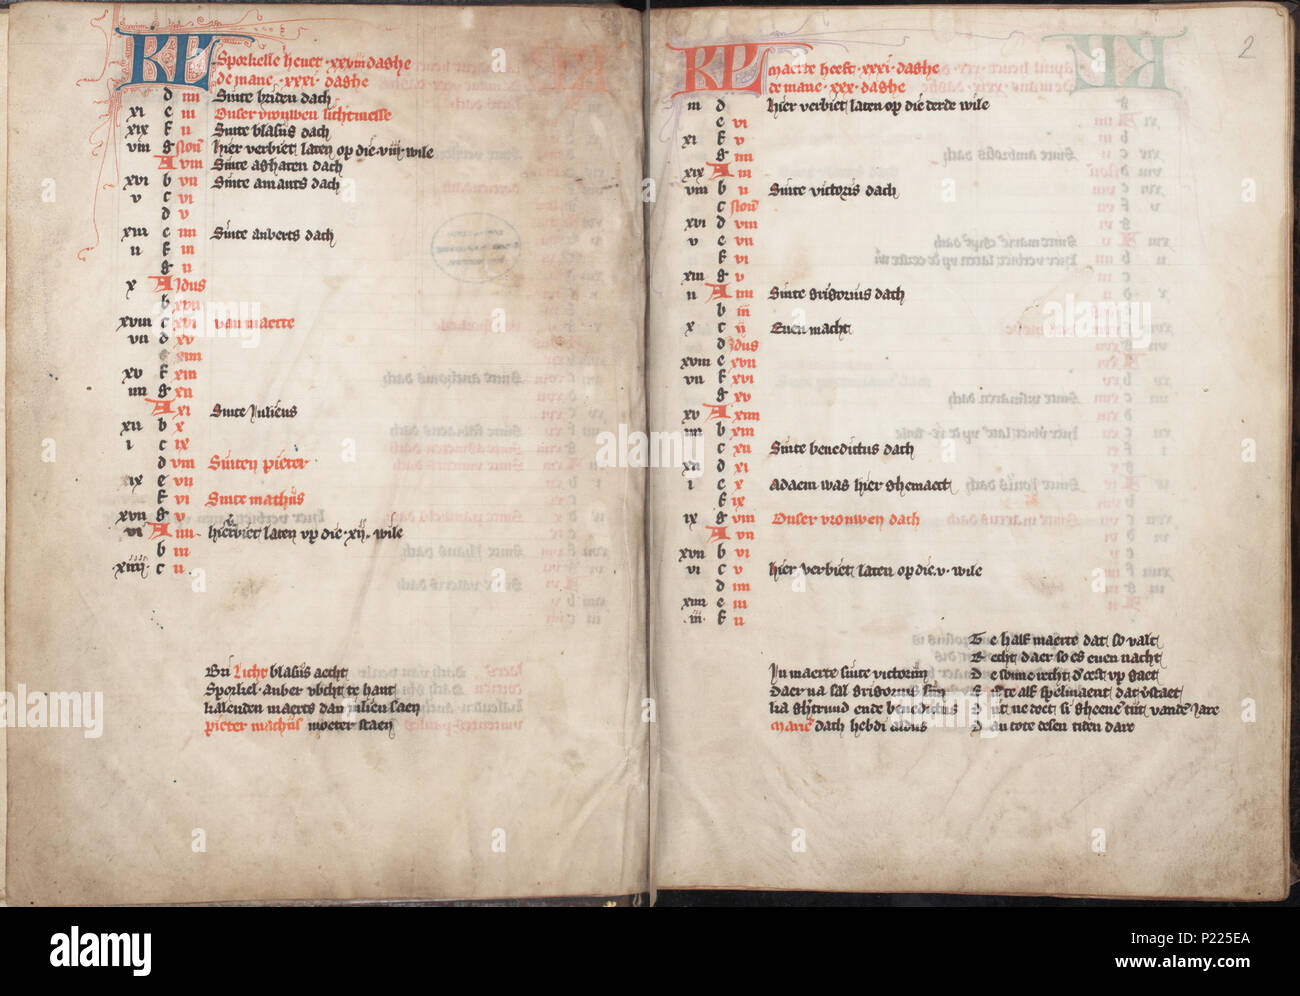 KL Sporkelle hevet · xxviii daghe
de mane · xxxi · daghe
d iiii Sinte briden dach
xi e iii Onser vrouwen lichtmesse
xix f ii Sinte blasius dach
viii g non' hier verbiet laten op die · viii · wile
A viii Sinte aghaten dach
xvi b vii Sinte amants dach
v c vi
d v
xiii e iiii Sinte auberts dach
ii f iii
g ii
x A Idus
b xvii
xviii c xvi van maerte
vii d xv
e xiiii
xv f xiii
iiii g xii
A xi Sinte Julieus
xii b x
i c ix
d viii Sinten pieter
ix e vii
f vi Sinte mathijs
xvii g v
vi A iiii hierbiet laten op die · xij · wile
b iii
xiiij · c ii
Bri Licht blasijs aecht
Sporkel · auber vbcht te hant
kalenden maerts dan iulien saen
pieter mathijs moeter staen
2
KL maerte heeft · xxxi · daghe
de mane · xxx · daghe
iii d hier verbiet laten op die derde wile
e vi
xi f v
g iiii
xix A iii
viii b ii Sinte victoris dach
c non'
xvi d viii
v e vii
f vi
xiii g v
ii A iiii Sinte grigorius dach
b iii
x c ii Even nacht
d Idus
xviii e xvii
vii f xvi
g xv
xv A xiiii
iiii b xiii
c xii Sinte benedictus dach
xii d xi
i e x Adaem was hier ghemaect
f ix
ix g viii Onser vrouwen dach
A vii
xvii b vi
vi c v hier verbiet laten op die · v · wile
d iiii
xiiii e iii
iii · f ii
In maerte sinte victorijn
daer na sal grigorius sijn
ka ghtrund ende benedictus
Marie dach hebdi aldus
Te half maerte dat so valt
Recht daer so es even nacht
De sonne recht d'oest op gaet